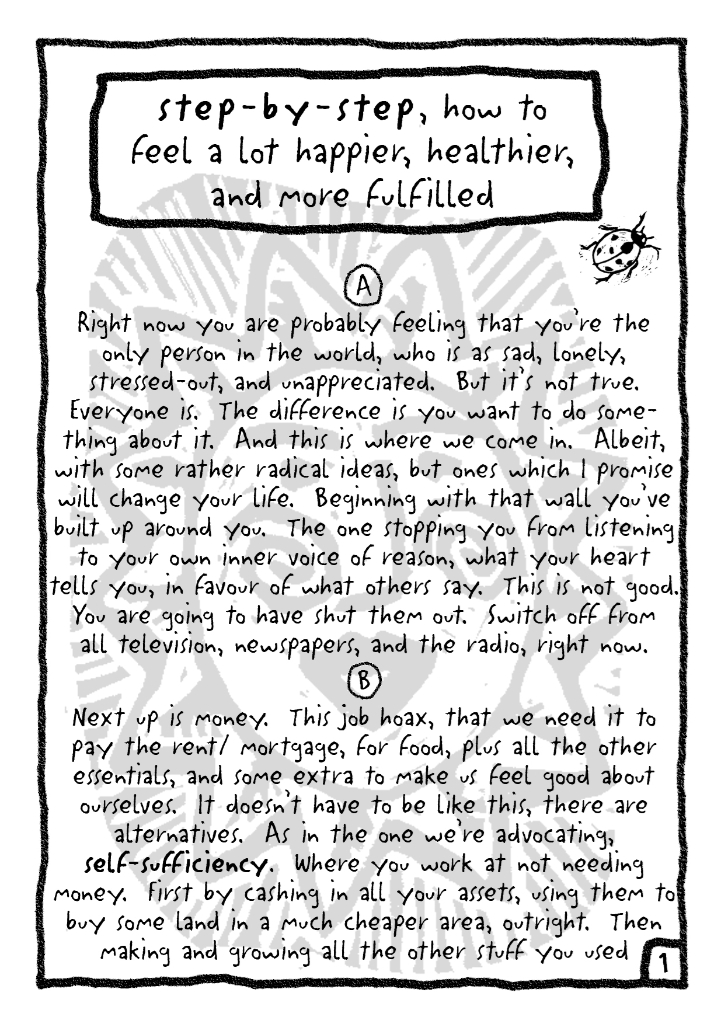 step-by-step, how to
feel a lot happier, healthier,
and more fulfilled
A
Right now you are probably feeling that you're the
only person in the world, who is as sad, lonely,
stressed-out, and unappreciated. But it's not true.
Everyone is. The difference is you want to do some-
thing about it. And this is where we come in. Albeit,
with some rather radical ideas, but ones which I promise
will change your life. Beginning with that wall you've
built up around you. The one stopping you from listening
to your own inner voice of reason, what your heart
tells you, in favour of what others say. This is not good.
You are going to have shut them out. Switch off from
all television, newspapers, and the radio, right now.
B
Next up is money. This job hoax, that we need it to
pay the rent/ mortgage, for food, plus all the other
essentials, and some extra to make us feel good about
ourselves. It doesn't have to be like this, there are
alternatives. As in the one we're advocating,
self-sufficiency. Where you work at not needing
money. First by cashing in all your assets, using them to
buy some land in a much cheaper area, outright. Then
making and growing all the other stuff you used
1